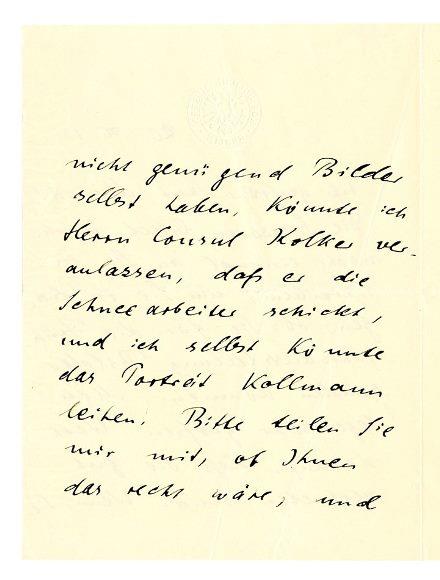 nicht genügend Bilder
selbst haben, könnte ich
Herrn Consul Kolker ver-
anlassen, daß er die
Schneearbeiter schickt,
und ich selbst könnte
das Porträt Kollmann
leihen. Bitte teilen Sie
mir mit, ob Ihnen
das recht wäre, und